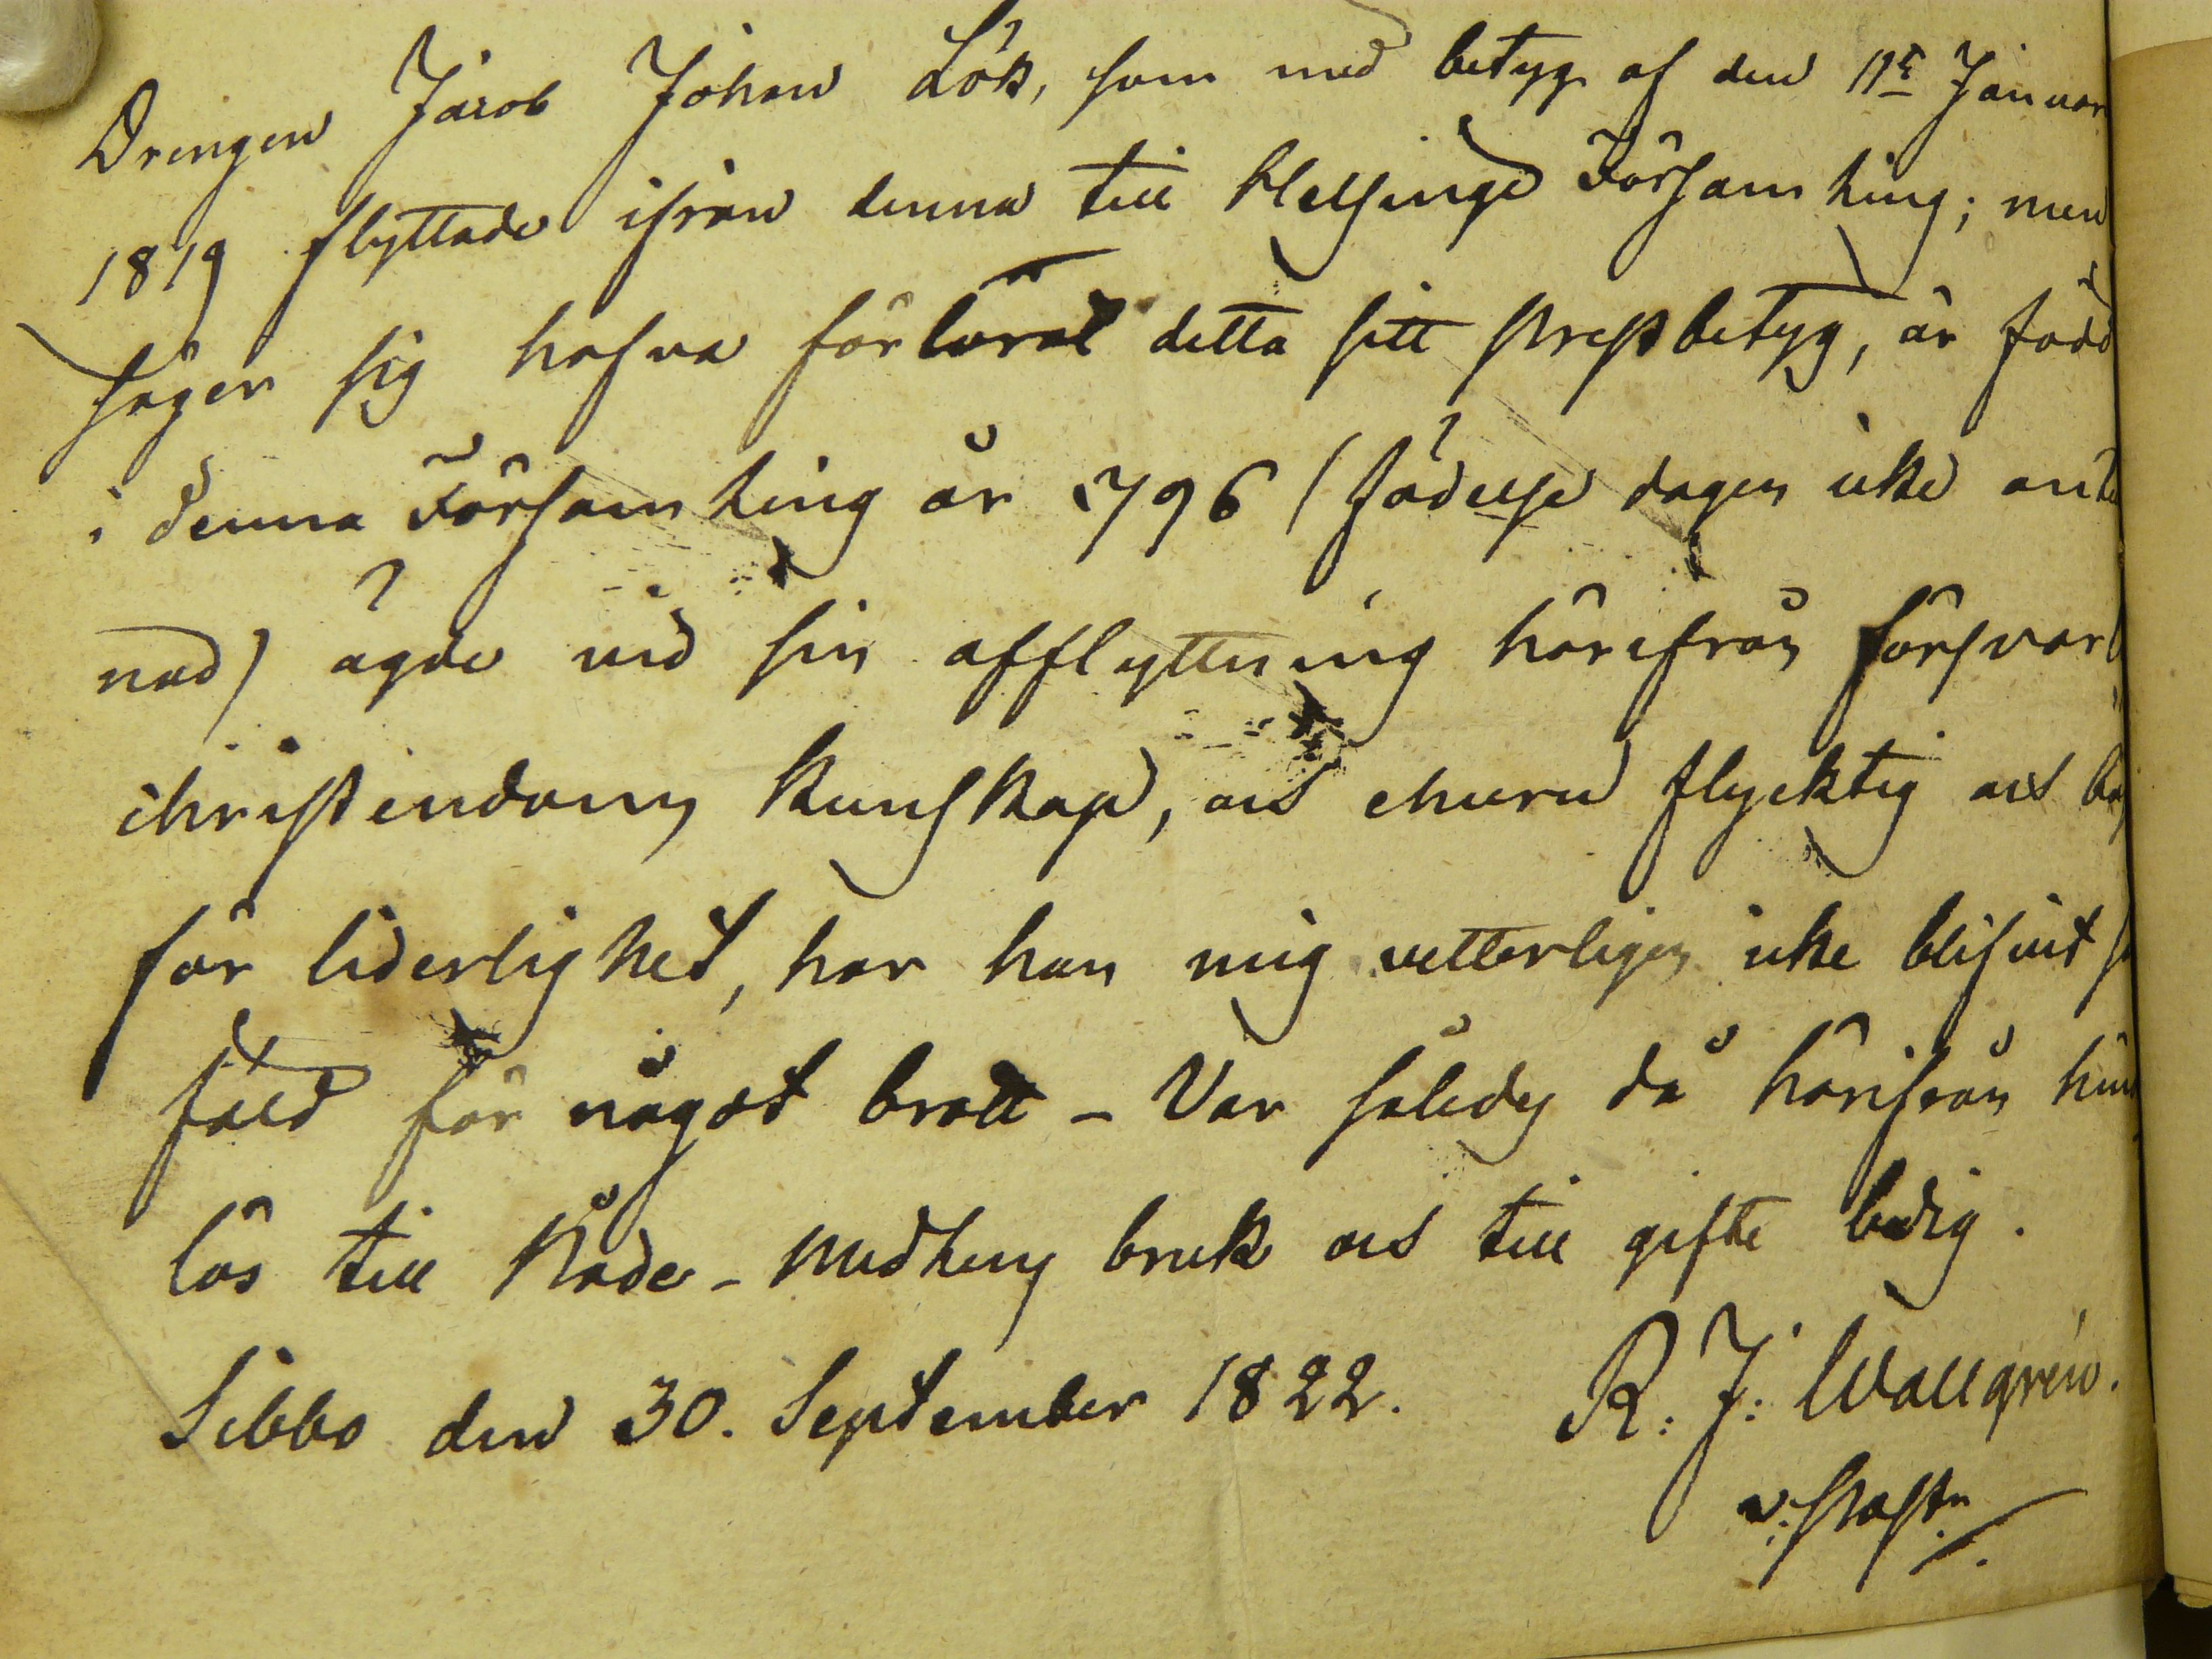 Drengen Jacob Johan Lök, som med betyg af den 11e Januar
1819 flyttade ifrån denna till Helsinge Församling; men
säger sig hafva förlorat detta sitt prestbetyg, är född
i denna Församling år 1796 (födelse dagen icke anteck
nad) ägde vid sin afflyttning härifrån försvarl
christendoms kunskap, och ehuru flycktig och
för liderlighet, har han mig vetterligen icke blifvit
fäld för något brott – Var således då härifrån hind
lös till Nåde-medlens bruk och till gifte ledig.
Sibbo den 30. September 1822. R: J: Wallgrén.
v: Past: